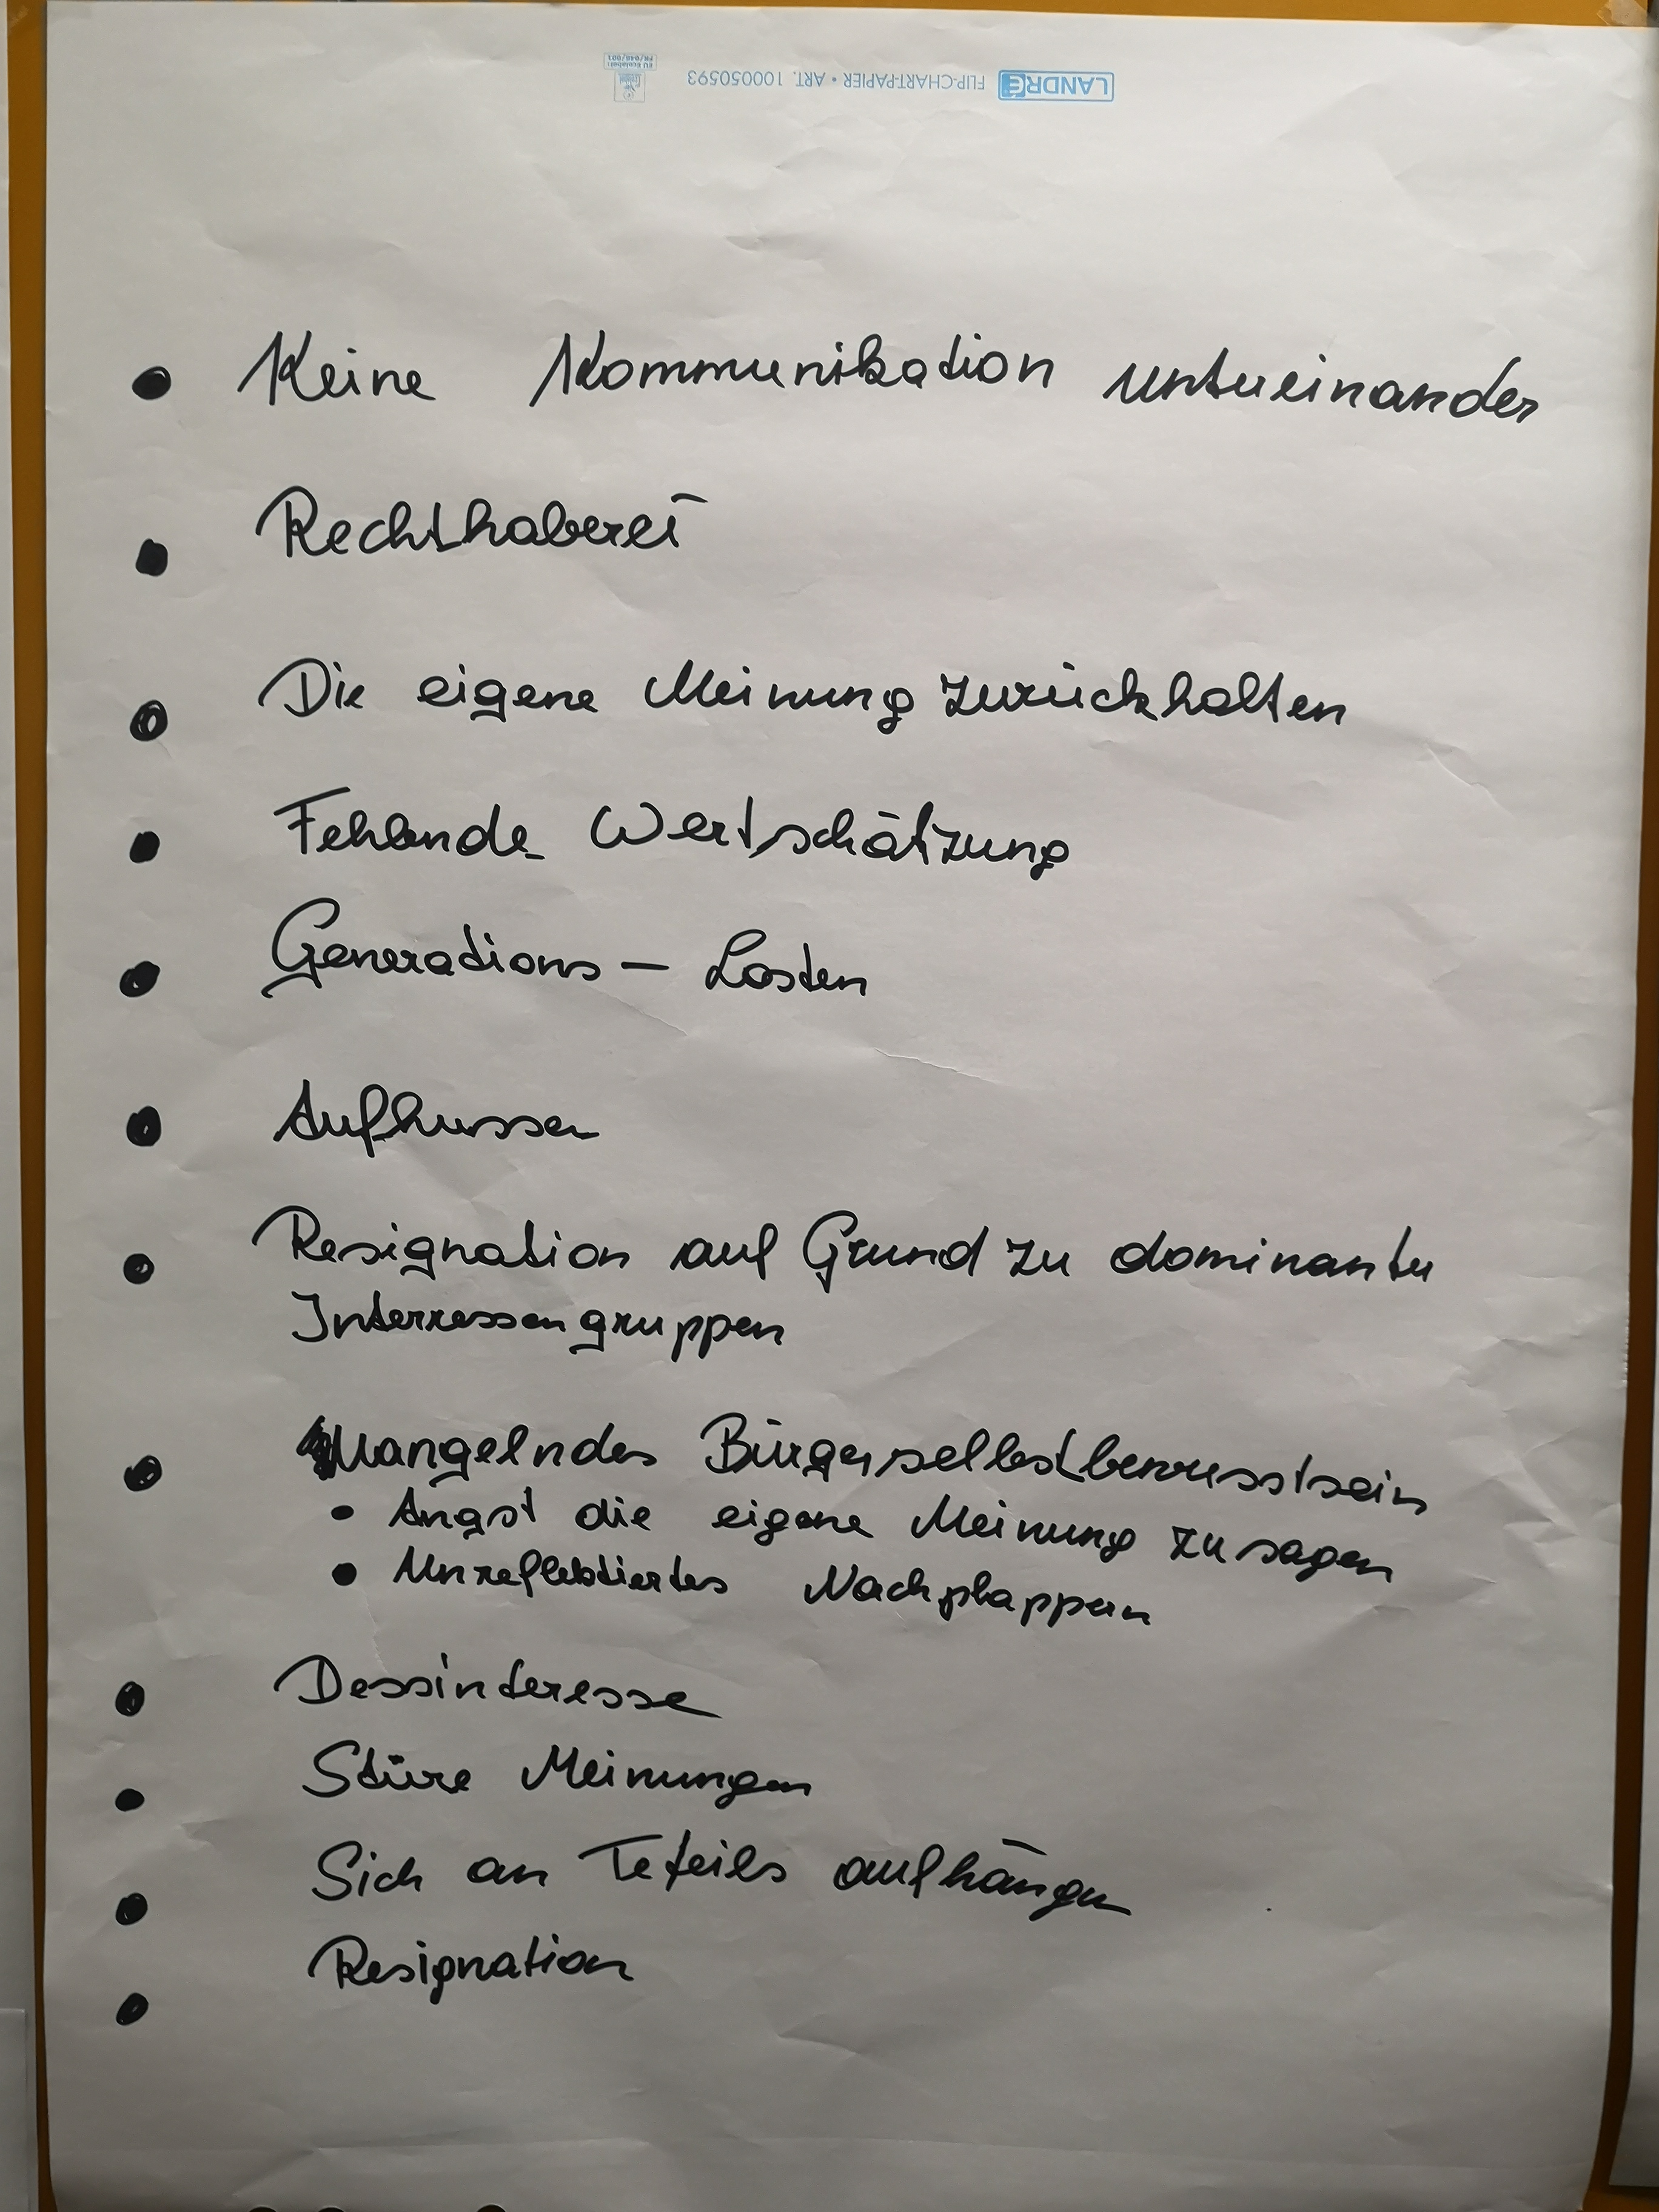 LANDRÉ FLIP-CHART-PAPIER • ART. 100050593
EU Ecolabel:
FR/048/001
• Keine Kommunikation untereinander
• Rechthaberei
• Die eigene Meinung zurückhalten
• Fehlende Wertschätzung
• Generations - Lasten
• Aufhussen
• Resignation auf Grund zu dominanter
Interressengruppen
• Mangelndes Bürgerselbstbewusstsein
• Angst die eigene Meinung zu sagen
• Unreflektiertes Nachplappern
• Dessinteresse
• Sture Meinungen
• Sich an Teteils aufhängen
• Resignation